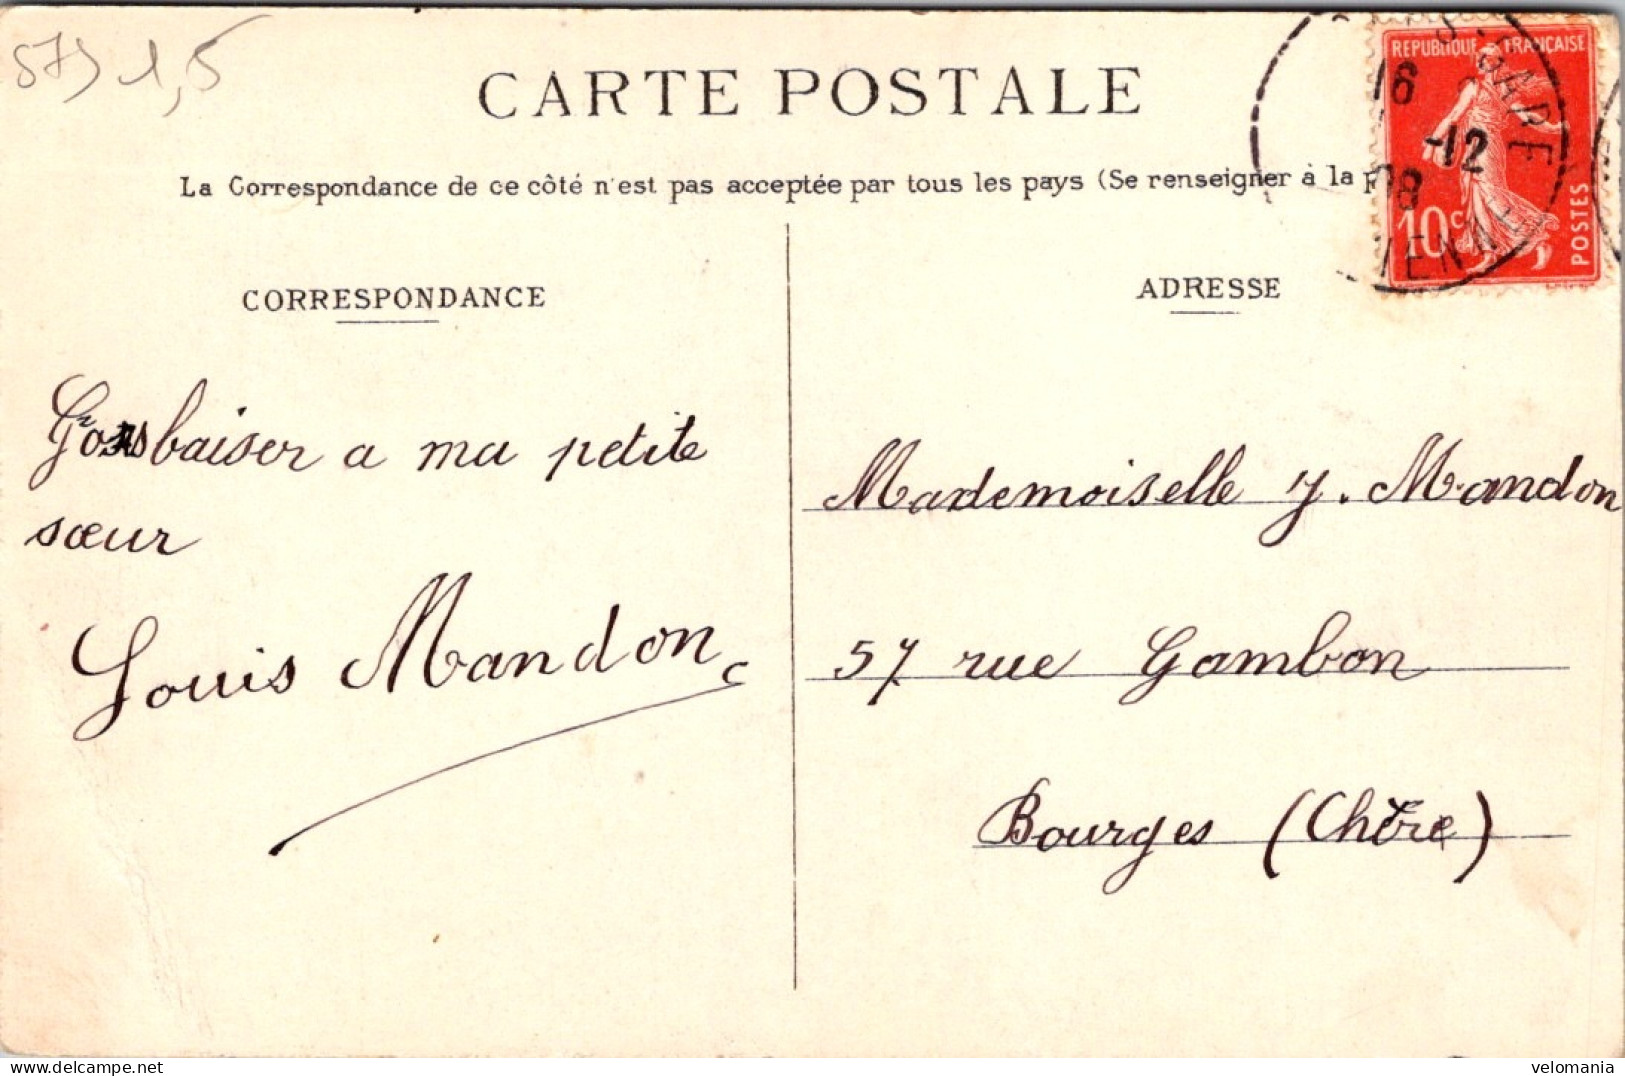 573 1,5
CARTE POSTALE
La Correspondance de ce côté n'est pas acceptée par tous les pays (Se renseigner à la
REPUBLIQUE FRANÇAISE
10c
POSTES
GARE
16
-12
08
CORRESPONDANCE
Gros baiser a ma petite
sœur
Louis Mandon
ADRESSE
Mademoiselle Y. Mandon
57 rue Gambon
Bourges (Chère)
velomania